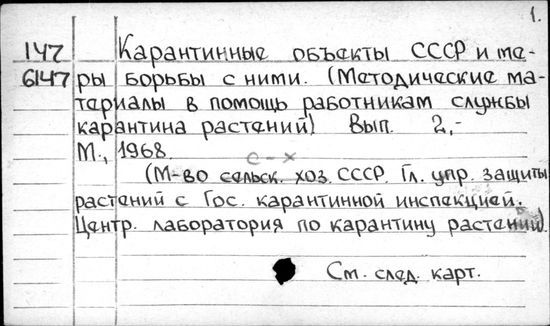 1.
147 Карантинные объекты СССР и ме-
6147 ры борьбы с ними. (Методические ма-
териалы в помощь работникам службы
карантина растений) Вып. 2,-
М., 1968.
с-х
(М-во сельск. хоз. СССР. Гл. упр. защиты
растений с Гос. карантинной инспекцией.
Центр. лаборатория по карантину растений).
См. след. карт.